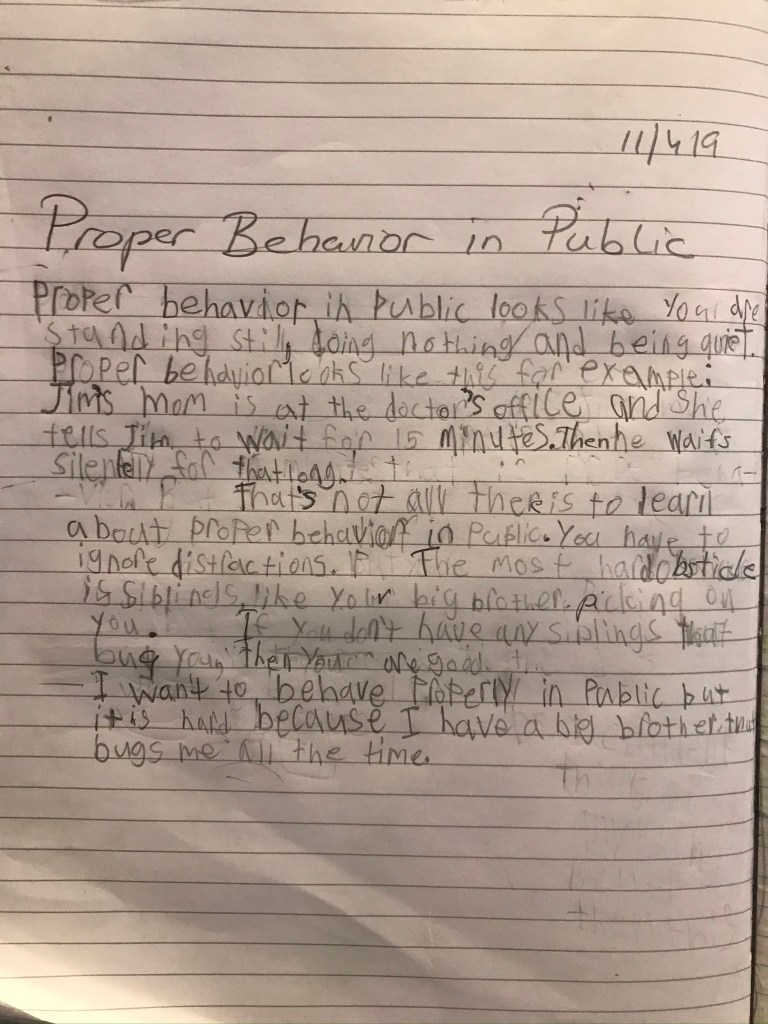 11/4 19
Proper Behavior in Public
Proper behavior in public looks like you are
standing still, doing nothing and being quiet.
Proper behavior looks like this for example:
Jim's mom is at the doctor's office and she
tells Jim to wait for 15 minutes. Then he waits
silently for that long.
That's not all there is to learn
about proper behavior in public. You have to
ignore distractions. The most hard obsticle
is siblings, like your big brother picking on
you. If you don't have any siblings that
bug you, then you are good.
I want to behave properly in public but
it is hard because I have a big brother that
bugs me all the time.